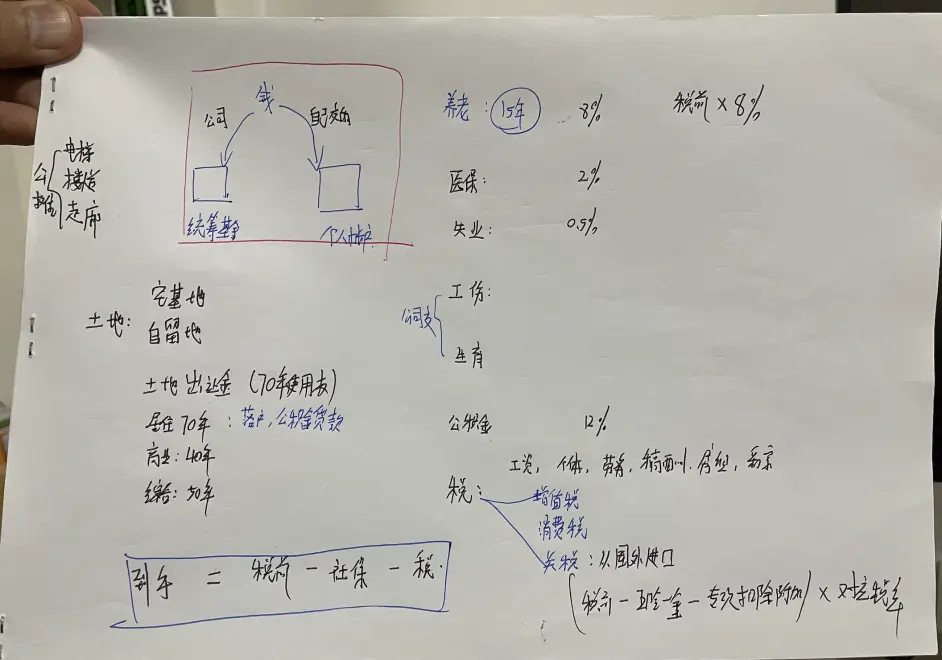 钱
公司
自己交的
统筹基金
个人帐户
公摊
电梯
楼道
走廊
养老：15年 8% 税前 × 8%
医保： 2%
失业： 0.5%
公司交
工伤：
生育
公积金 12%
土地：
宅基地
自留地
土地出让金（70年使用权）
居住70年：落户，公积金贷款
商业：40年
综合：50年
税：
工资，个体，劳务，稿酬
增值税
消费税
关税：从国外进口
到手 = 税前 - 社保 - 税.
（税前 - 五险一金 - 专项扣除附加）× 对应税率